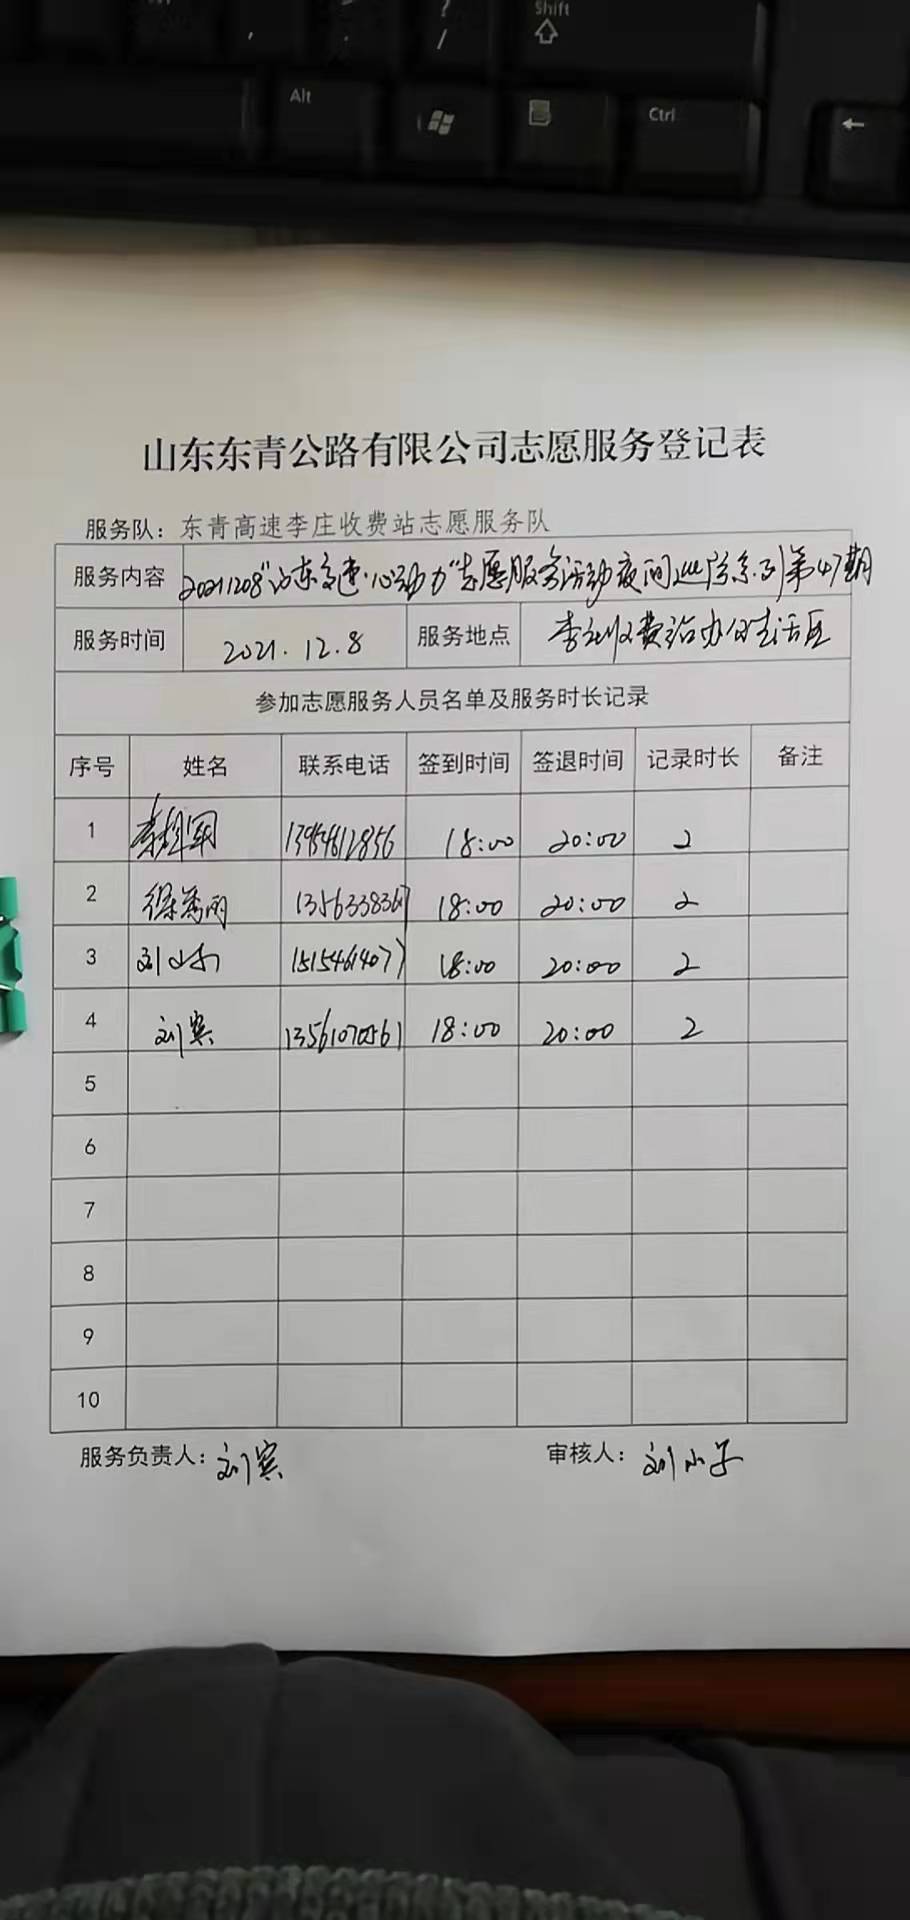 Shift
Alt
Ctrl
山东东青公路有限公司志愿服务登记表
服务队：东青高速李庄收费站志愿服务队
服务内容 20211208"山东高速·心动力"志愿服务活动夜间巡逻系列第47期
服务时间 2021.12.8 服务地点 李庄收费站办公生活区
参加志愿服务人员名单及服务时长记录
序号 姓名 联系电话 签到时间 签退时间 记录时长 备注
1 13954612856 18:00 20:00 2
2 1356338367 18:00 20:00 2
3 刘小 15154614077 18:00 20:00 2
4 刘宾 13561070561 18:00 20:00 2
5
6
7
8
9
10
服务负责人：刘宾 审核人：刘小子